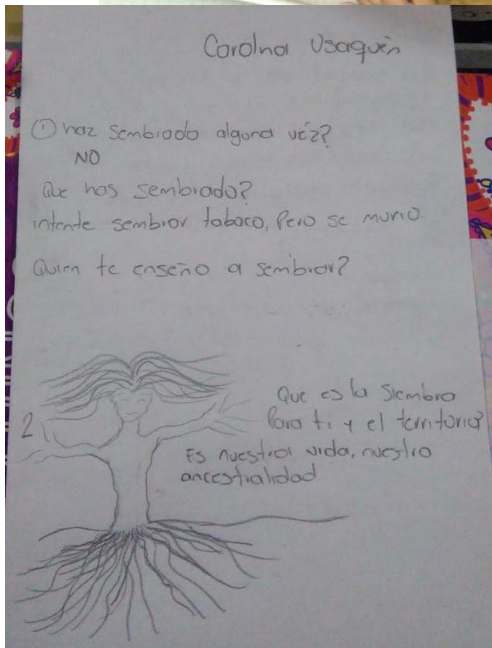 Carolina Usaquén
① haz sembrado alguna véz?
NO
Que has sembrado?
intente sembrar tabaco, Pero se murio
Quien te enseño a sembrar?
2
Que es la siembra
Para ti y el territorio?
Es nuestra vida, nuestra
ancestralidad